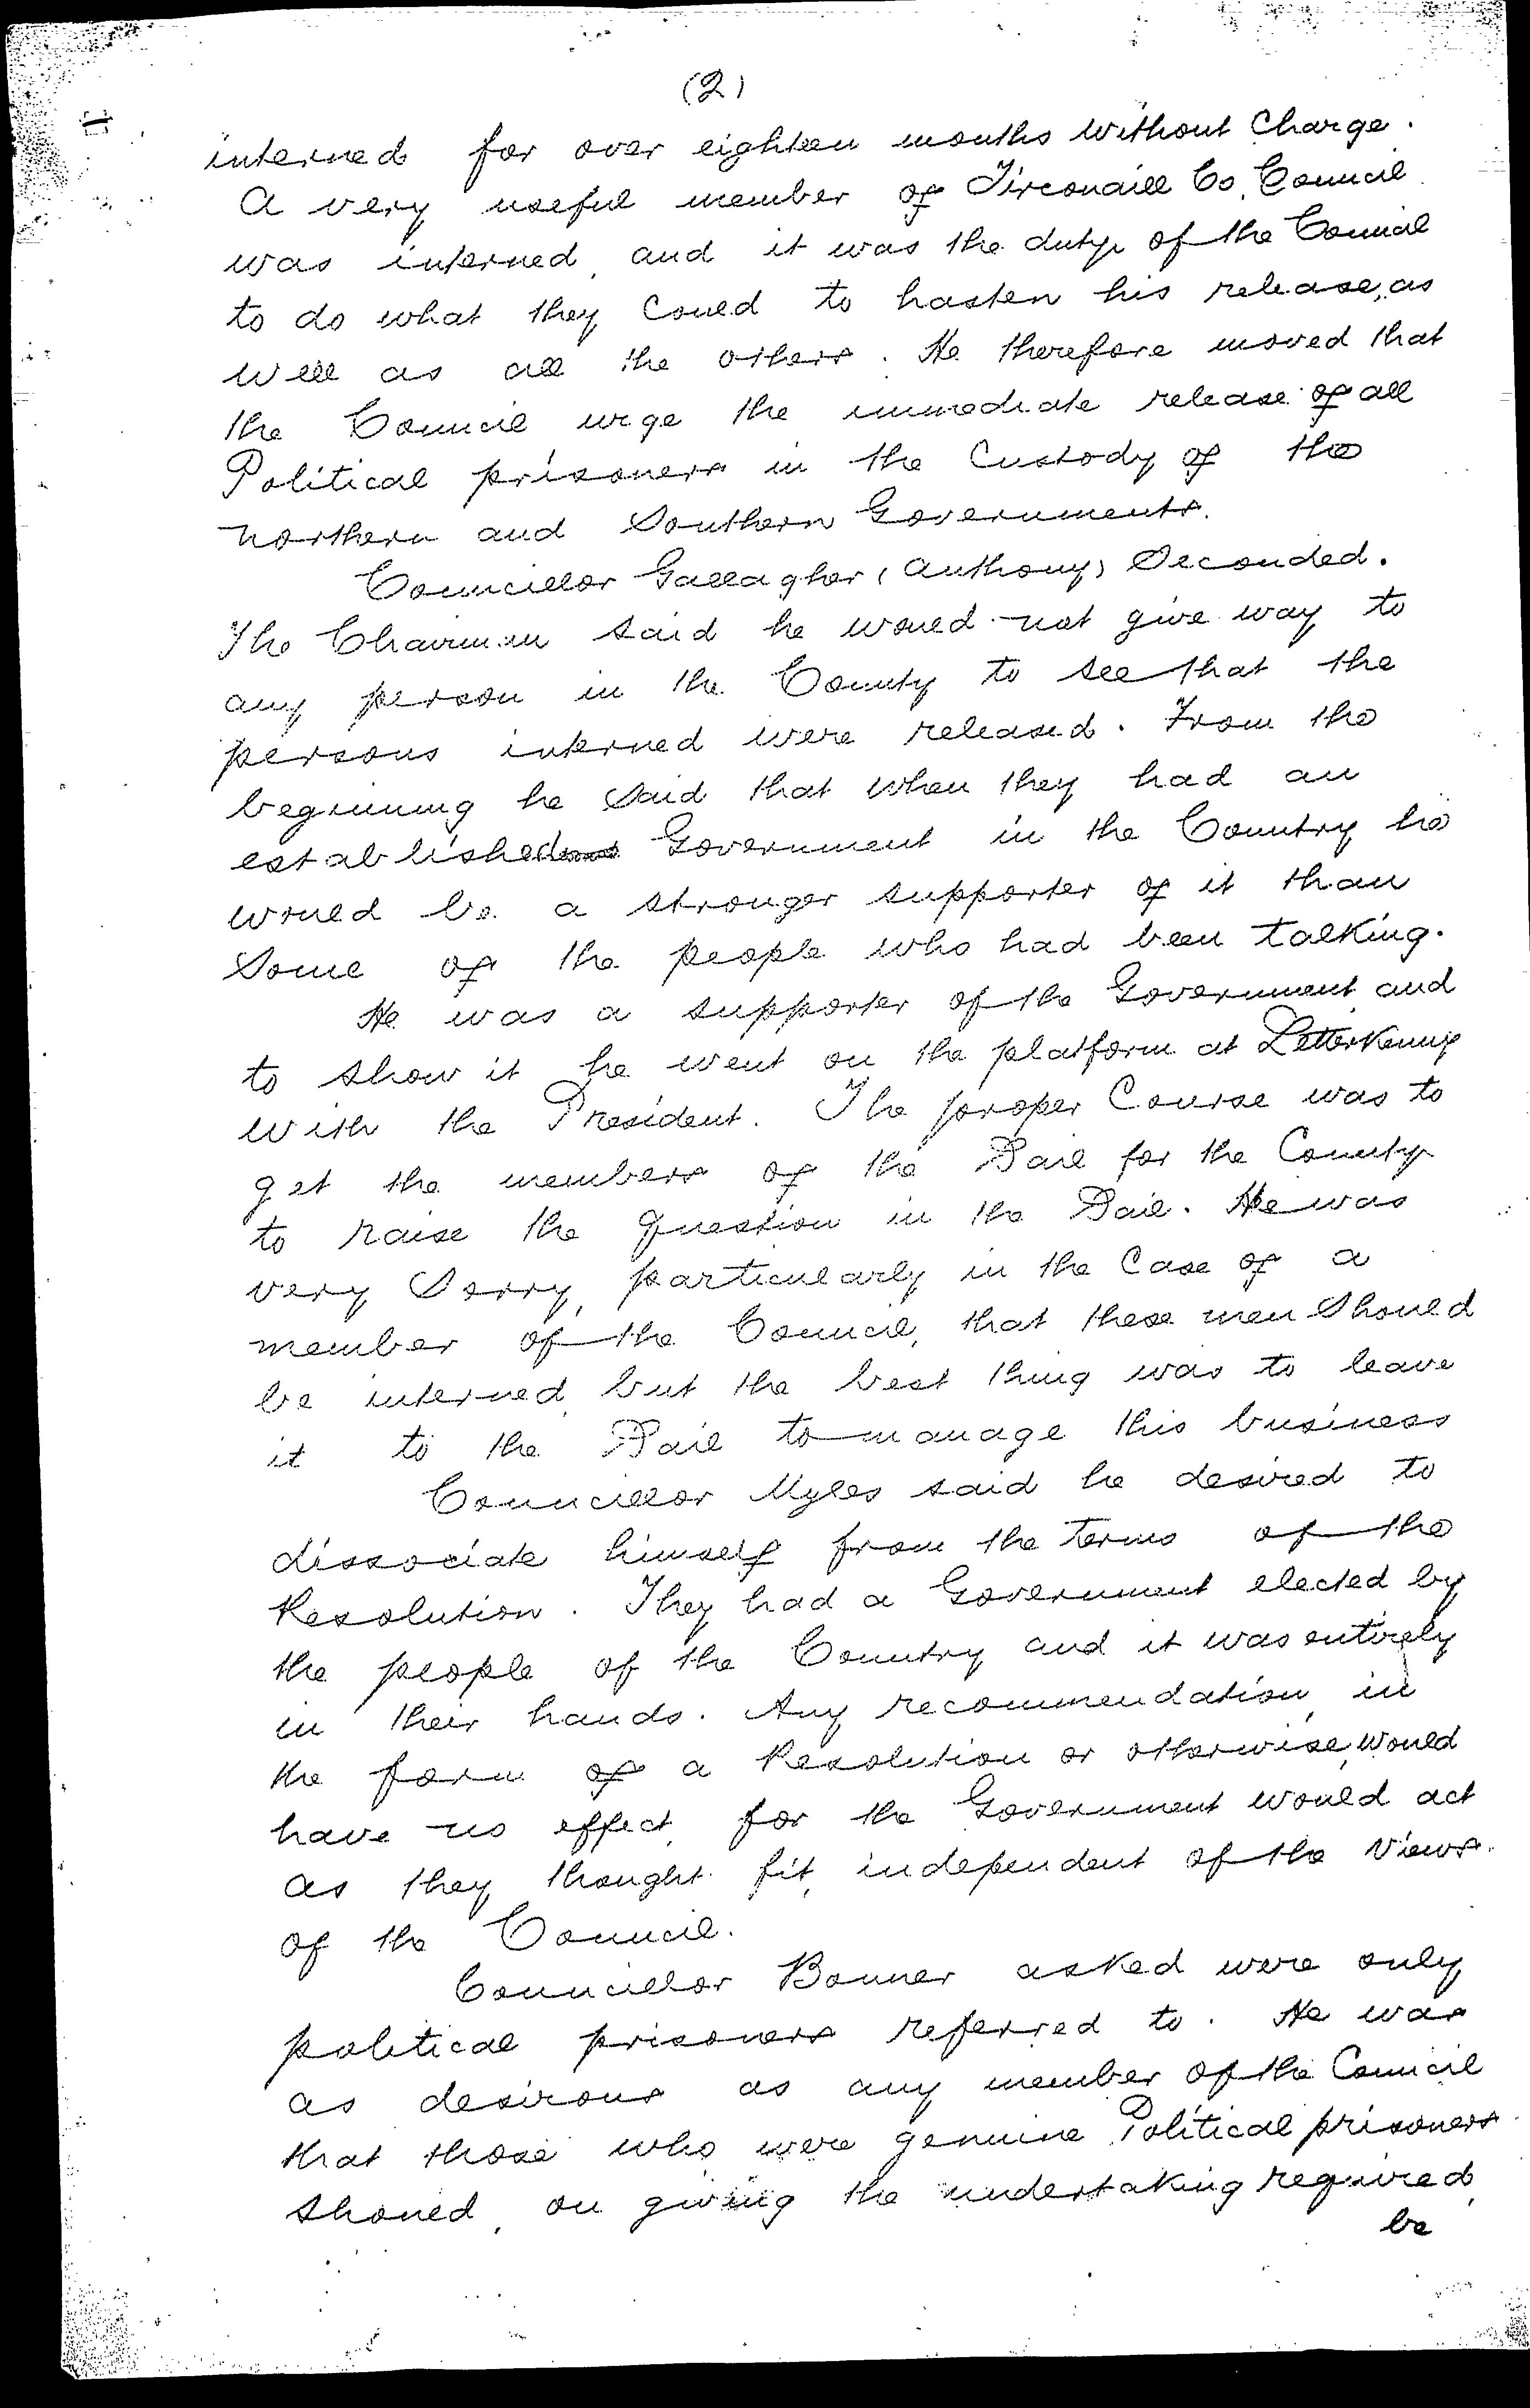 (2)
interned for over eighteen months without Charge.
A very useful member of Tirconaill Co. Council
was interned, and it was the duty of the Council
to do what they Could to hasten his release, as
well as all the others. He therefore moved that
the Council urge the immediate release of all
Political prisoners in the Custody of the
northern and Southern Governments.
Councillor Gallagher (Anthony) Seconded.
The Chairman said he would not give way to
any person in the County to see that the
persons interned were released. From the
beginning he Said that when they had an
established Government in the Country he
would be a stronger supporter of it than
Some of the people who had been talking.
He was a supporter of the Government and
to show it he went on the platform at Letterkenny
with the President. The proper Course was to
get the members of the Dail for the County
to raise the question in the Dail. He was
very Sorry, particularly in the Case of a
member of the Council, that these men Should
be interned, but the best thing was to leave
it to the Dail to manage this business
Councillor Myles said he desired to
dissociate himself from the terms of the
Resolution. They had a Government elected by
the people of the Country and it was entirely
in their hands. Any recommendation, in
the form of a Resolution or otherwise, would
have no effect, for the Government would act
as they thought fit, independent of the Views.
of the Council.
Councillor Bonner asked were only
political prisoners referred to. He was
as desirous as any member of the Council
that those who were genuine Political prisoners
should, on giving the undertaking required,
be